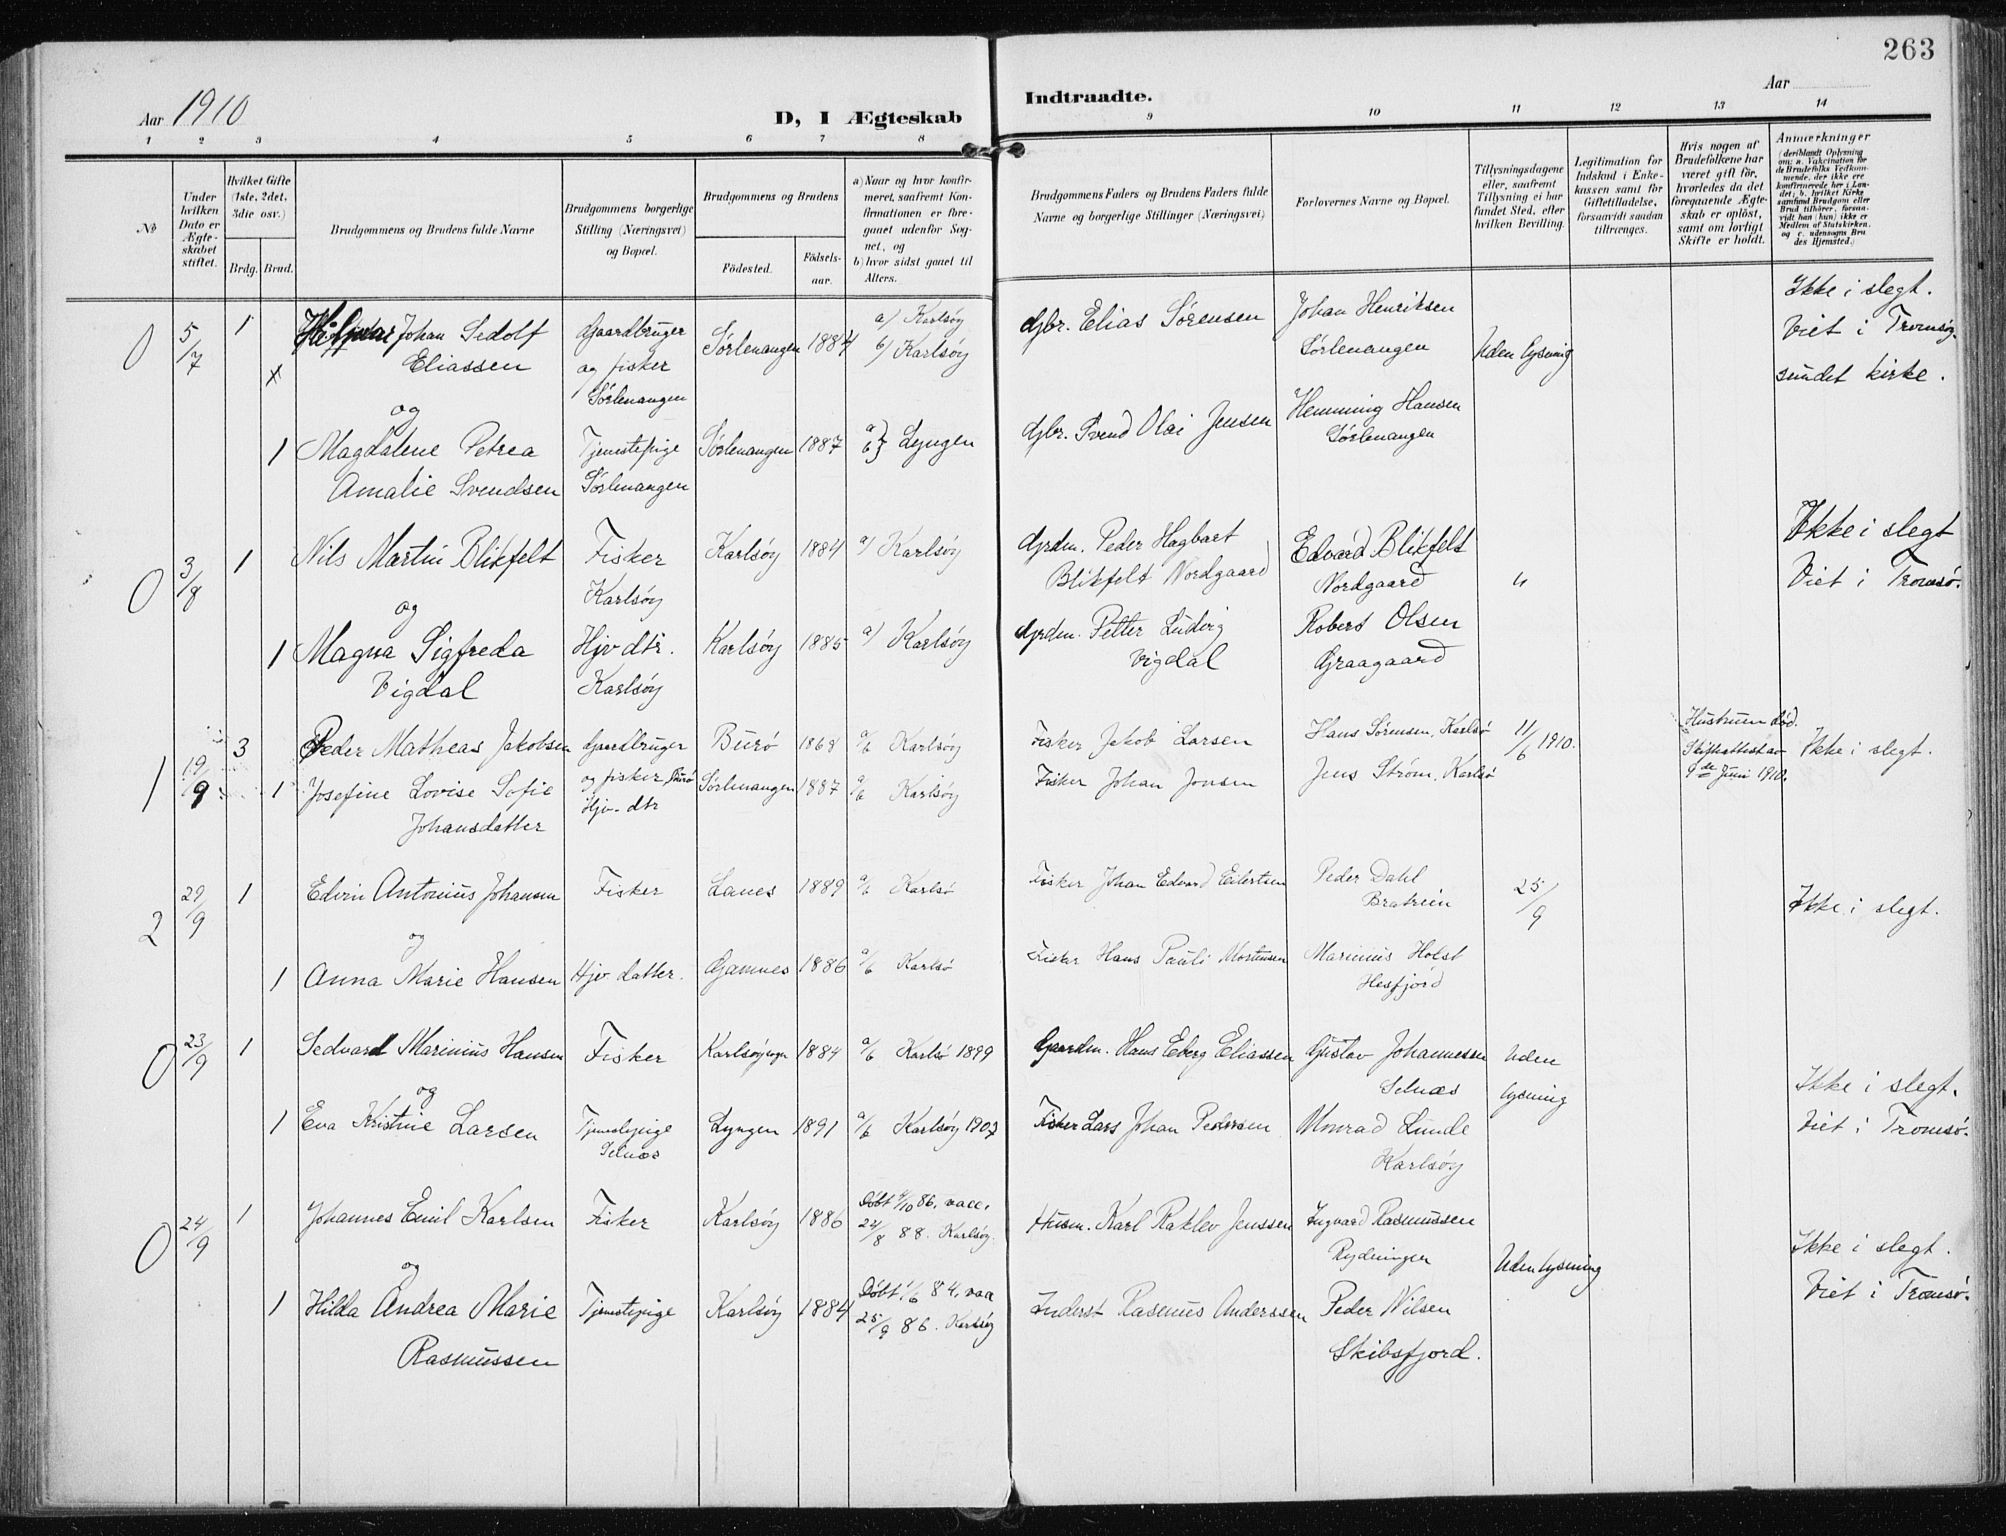 263
Aar 1910
D, I Ægteskab
Indtraadte.
Aar
1 2 3 4 5 6 7 8 9 10 11 12 13 14
No
Under hvilken Dato er Ægteskabet stiftet.
Hvilket Gifte (1ste, 2det, 3die osv.)
Brdg. Brud.
Brudgommens og Brudens fulde Navne
Brudgommens borgerlige Stilling (Næringsvei) og Bopæl.
Brudgommens og Brudens
Födested.
Födselsaar.
a) Naar og hvor konfirmeret, saafremt Konfirmationen er foregaaet udenför Sognet, og
b) hvor sidst gaaet til Alters.
Brudgommens Faders og Brudens Faders fulde Navne og borgerlige Stillinger (Næringsvei)
Forlovernes Navne og Bopæl.
Tillysningsdagene eller, saafremt Tillysning ei har fundet Sted, efter hvilken Bevilling.
Legitimation for Indskud i Enkekassen samt för Giftetilladelse, forsaavidt saadan tiltrænges.
Hvis nogen af Brudefolkene har været gift för, hvorledes da det foregaaende Ægteskab er oplöst, samt om lovligt Skifte er holdt.
Anmærkninger (deriblandt Oplysning om: a. Vakcination for de Brudefolks Vedkommende, der ikke ere konfirmerede her i Landet; b. hvilket Kirkesamfund Brudgom eller Brud tilhörer, forsaavidt han (hun) ikke er Medlem af Statskirken, og c. udensogns Brudes Hjemsted.)
0 5/7 1 Johan Sedolf Eliassen
Gaardbruger og fisker Sørlenangen
Sørlenangen 1884
a) Karlsöy
b) Karlsöy
Gbr. Elias Sörensen
Johan Henriksen Sörlenangen
Uden lysning
Ikke i slegt.
Viet i Tromsøsundet kirke.
x
og
1 Magdalene Petrea Amalie Svendsen
Tjenestepige Sørlenangen
Sørlenangen 1887
a) b) Lyngen
Gbr. Svend Olai Jensen
Hemming Hansen Sörlenangen
0 3/8 1 Nils Martin Blikfelt
Fisker Karlsöy
Karlsöy 1884
a) Karlsöy
Grdm. Peder Hagbart Blikfelt Nordgaard
Edvard Blikfelt Nordgaard
"
Ikke i slegt
Viet i Tromsø.
og
1 Magna Sigfreda Vigdal
Hjv dtr. Karlsöy
Karlsöy 1885
a) Karlsöy
Grdm. Petter Ludvig Vigdal
Robert Olsen Graagaard
1 19/9 3 Peder Matheas Jakobsen
Gaardbruger og fisker, Burö
Burö 1868
a/b Karlsöy
Fisker Jakob Larsen
Hans Sörensen, Karlsö
11/6 1910.
Hustruen död. Skifteattest av 9de Juni 1910.
Ikke i slegt.
1 Josefine Lovise Sofie Johansdatter
Hjv. dtr
Sørlenangen 1887
a/b Karlsöy
Fisker Johan Jonsen
Jens Ström, Karlsö
2 29/9 1 Edvin Antonius Johansen
Fisker
Lanes 1889
a/b Karlsö
Fisker Johan Edvard Eilertsen
Peder Dahl Bratrein
25/9
Ikke i slegt.
og
1 Anna Marie Hansen
Hjv. datter.
Gamnes 1886
a/b Karlsö
Fisker Hans Pauli Mortensen
Marinius Holst Hesfjord
0 23/9 1 Sedvard Marinius Hansen
Fisker
1884
a/b Karlsö 1899
Gaardm. Hans Eberg Eliassen
Gustav Johannessen Selnæs
Uden lysning
Ikke i slegt.
Viet i Tromsö.
og
1 Eva Kristine Larsen
Tjenestepige Selnæs
Lyngen 1891
a/b Karlsöy 1907
Fisker Lars Johan Pedersen
Monrad Lunde Karlsöy
0 24/9 1 Johannes Emil Karlsen
Fisker
Karlsöy 1886
Döbt 4/10 86, vacc. 24/8 88. Karlsöy.
Husm. Karl Raklev Jenssen
Ingvard Rasmussen Rydningen
Uden lysning
Ikke i slegt.
Viet i Tromsö.
og
1 Hilda Andrea Marie Rasmussen
Tjenestepige
Karlsöy 1884
Döbt 1/6 84, vacc 25/9 86. Karlsöy
Inderst Rasmus Anderssen
Peder Nilsen Skibsfjord.